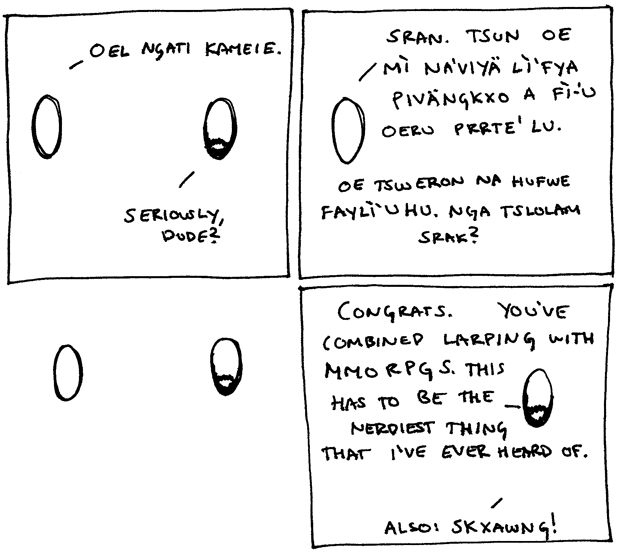 OEL NGATI KAMEIE.
SERIOUSLY,
DUDE?
SRAN. TSUN OE
MÌ NA'VIYÄ LÌ'FYA
PIVÄNGKXO A FÌ-'U
OERU PRRTE' LU.
OE TSWERON NA HUFWE
FAYLÌ'UHU. NGA TSLOLAM
SRAK?
CONGRATS. YOU'VE
COMBINED LARPING WITH
MMORPGS. THIS
HAS TO BE THE
NERDIEST THING
THAT I'VE EVER HEARD OF.
ALSO: SKXAWNG!